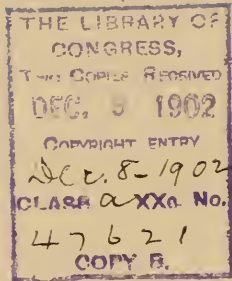 THE LIBRARY OF
CONGRESS,
TWO COPIES RECEIVED
DEC. 9 1902
COPYRIGHT ENTRY
Dec. 8-1902
CLASS a XXc. No.
47621
COPY B.